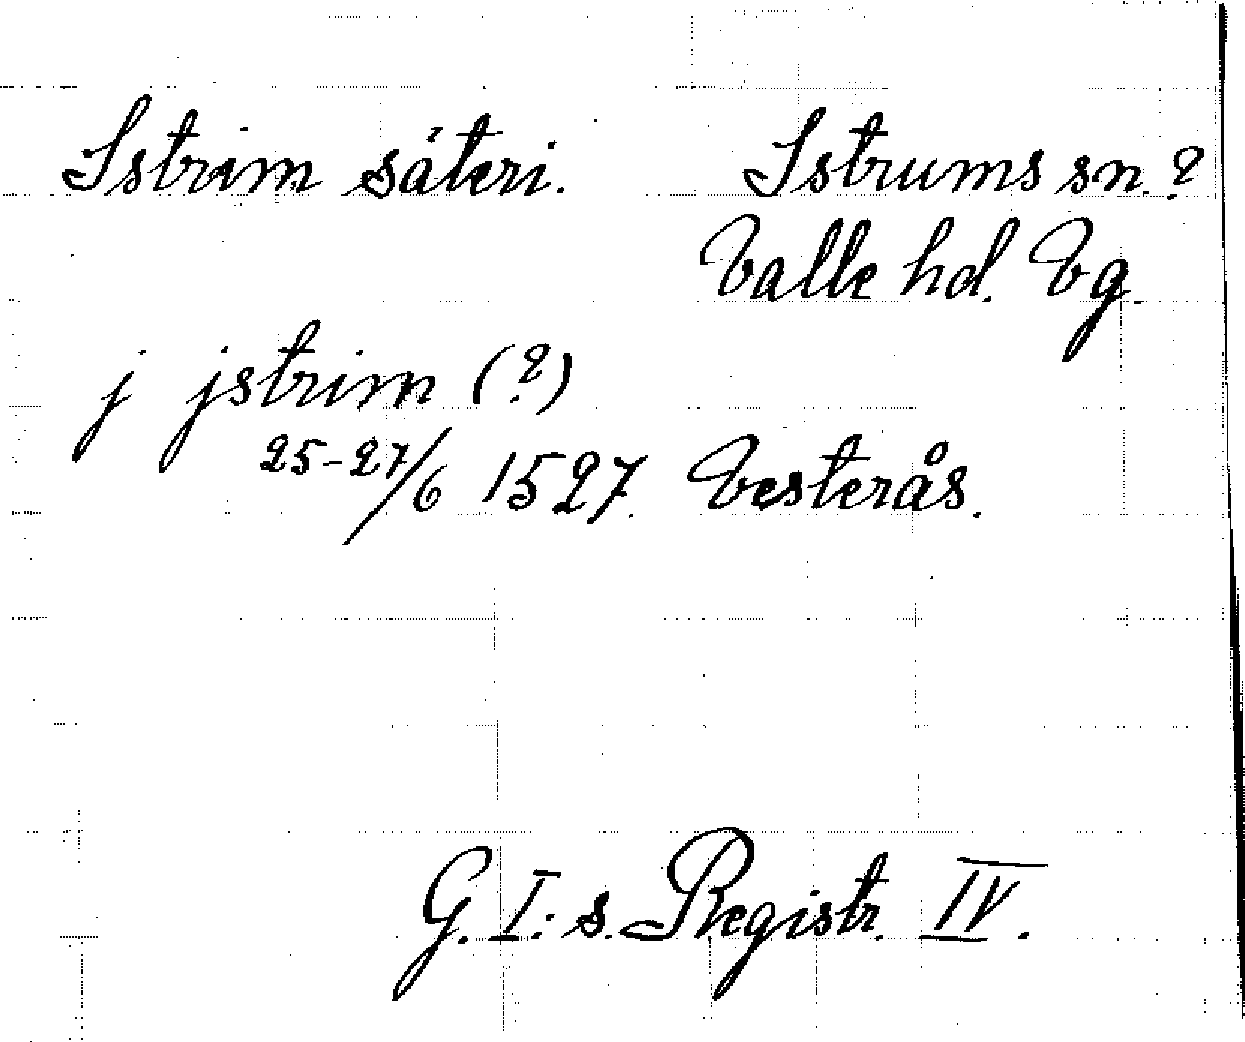 Istrim säteri. Istrums sn.?
Valle hd. Vg.
j jstrim (?)
25-27/6 1527. Vesterås.
G. I:s. Registr. IV.